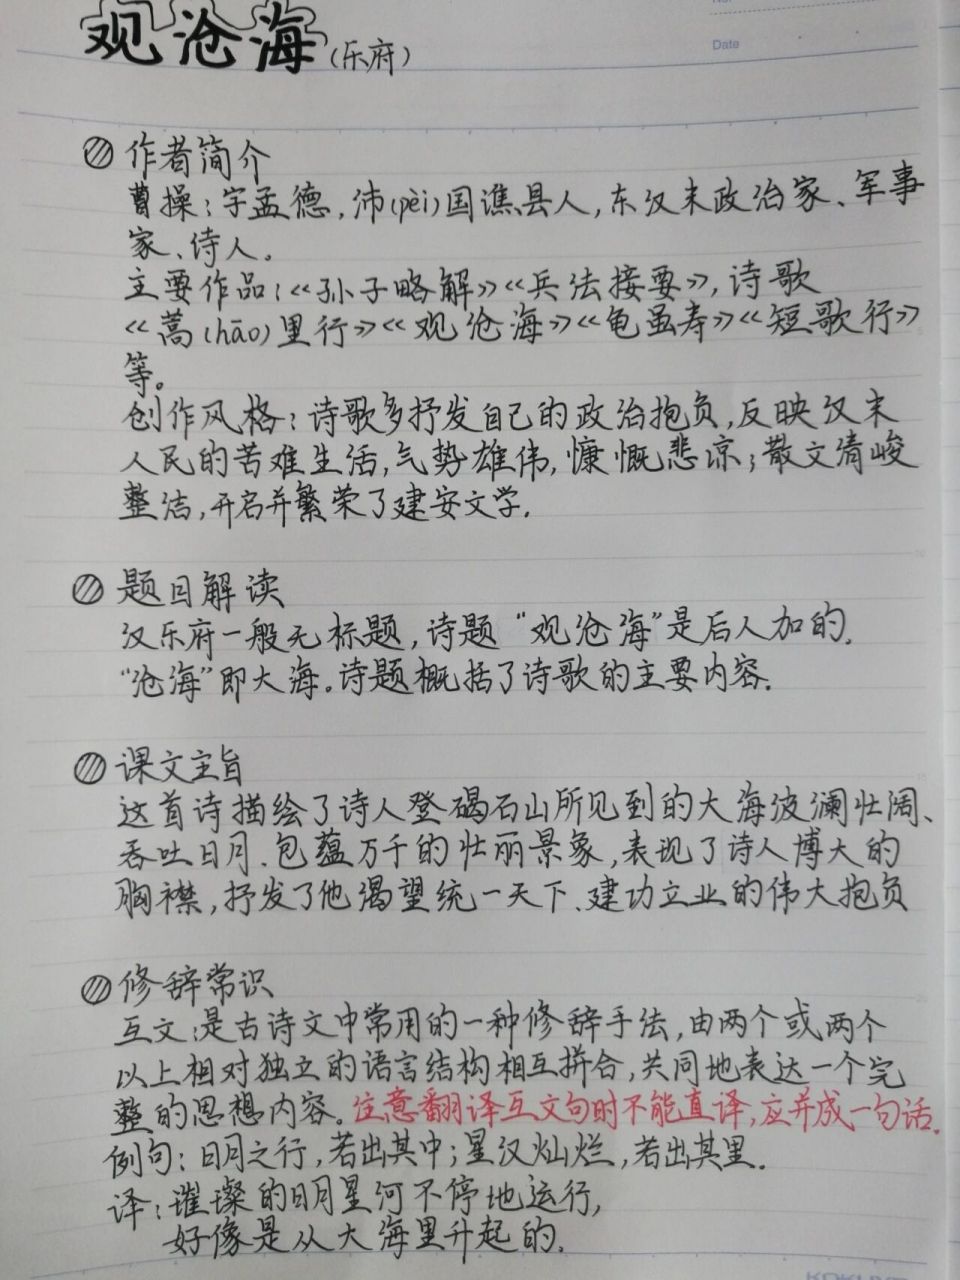 Date
观沧海(乐府)
作者简介
曹操:字孟德,沛(pèi)国谯县人,东汉末政治家、军事
家、诗人。
主要作品:《孙子略解》《兵法接要》,诗歌
《蒿(hāo)里行》《观沧海》《龟虽寿》《短歌行》
等。
创作风格:诗歌多抒发自己的政治抱负,反映汉末
人民的苦难生活,气势雄伟,慷慨悲凉;散文清峻
整洁,开启并繁荣了建安文学.
题目解读
汉乐府一般无标题,诗题“观沧海”是后人加的.
“沧海”即大海。诗题概括了诗歌的主要内容.
课文主旨
这首诗描绘了诗人登碣石山所见到的大海波澜壮阔、
吞吐日月、包蕴万千的壮丽景象,表现了诗人博大的
胸襟,抒发了他渴望统一天下、建功立业的伟大抱负
修辞常识
互文:是古诗文中常用的一种修辞手法,由两个或两个
以上相对独立的语言结构相互拼合,共同地表达一个完
整的思想内容。注意翻译互文句时不能直译,应并成一句话.
例句:日月之行,若出其中;星汉灿烂,若出其里.
译:璀璨的日月星河不停地运行,
好像是从大海里升起的.